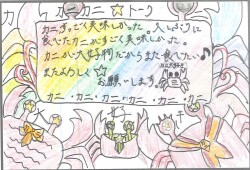 カニカニ☆トーク
カニすごく美味しかった。久しぶりに
食べたカニがすごく美味しかった。
カニが大好物だからまた食べたい♪
またよろしく☆
お願いします。
カニ・カニ・カニ・カニ・カニ・カニ